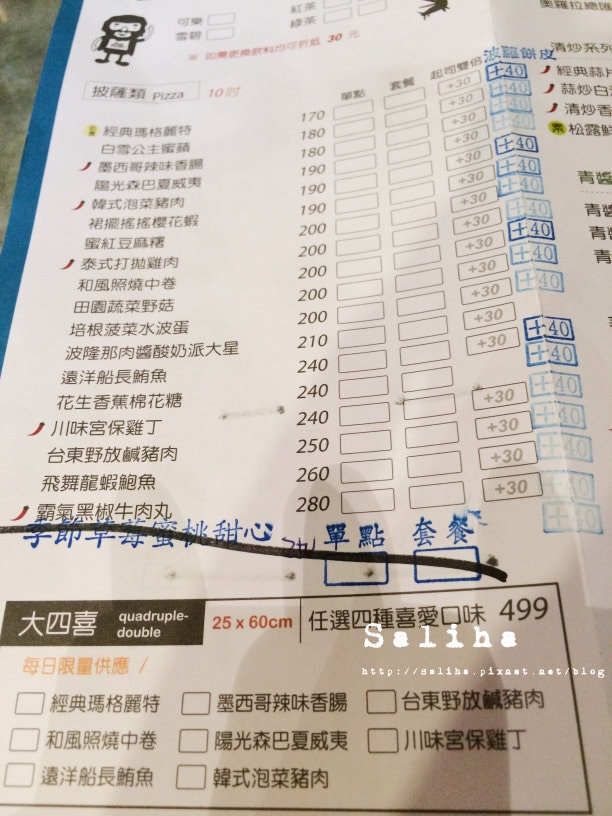 可樂
雪碧
紅茶
綠茶
奧羅拉總匯
※ 如需更換飲料均可折抵 30 元
披薩類 Pizza 10吋
單點 套餐 起司雙倍 波蘿餅皮
經典瑪格麗特 170 +30 +40
白雪公主蜜蘋 180 +30 +40
墨西哥辣味香腸 180 +30 +40
陽光森巴夏威夷 190 +30 +40
韓式泡菜豬肉 190 +30 +40
裙擺搖搖櫻花蝦 190 +30 +40
蜜紅豆麻糬 200 +30 +40
泰式打拋雞肉 200 +30 +40
和風照燒中卷 200 +30 +40
田園蔬菜野菇 200 +30 +40
培根菠菜水波蛋 200 +30 +40
波隆那肉醬酸奶派大星 210 +30 +40
遠洋船長鮪魚 240 +30 +40
花生香蕉棉花糖 240
川味宮保雞丁 240 +30 +40
台東野放鹹豬肉 250 +30 +40
飛舞龍蝦鮑魚 260 +30 +40
霸氣黑椒牛肉丸 280 +30 +40
季節草莓蜜桃甜心 單點 套餐
清炒系列
經典蒜片
蒜炒白
清炒香
素 松露鮮
青醬
青醬
青醬
青
大四喜 quadruple-double 25 x 60cm 任選四種喜愛口味 499
每日限量供應 /
經典瑪格麗特 墨西哥辣味香腸 台東野放鹹豬肉
和風照燒中卷 陽光森巴夏威夷 川味宮保雞丁
遠洋船長鮪魚 韓式泡菜豬肉
Saliha
http://saliha.pixnet.net/blog